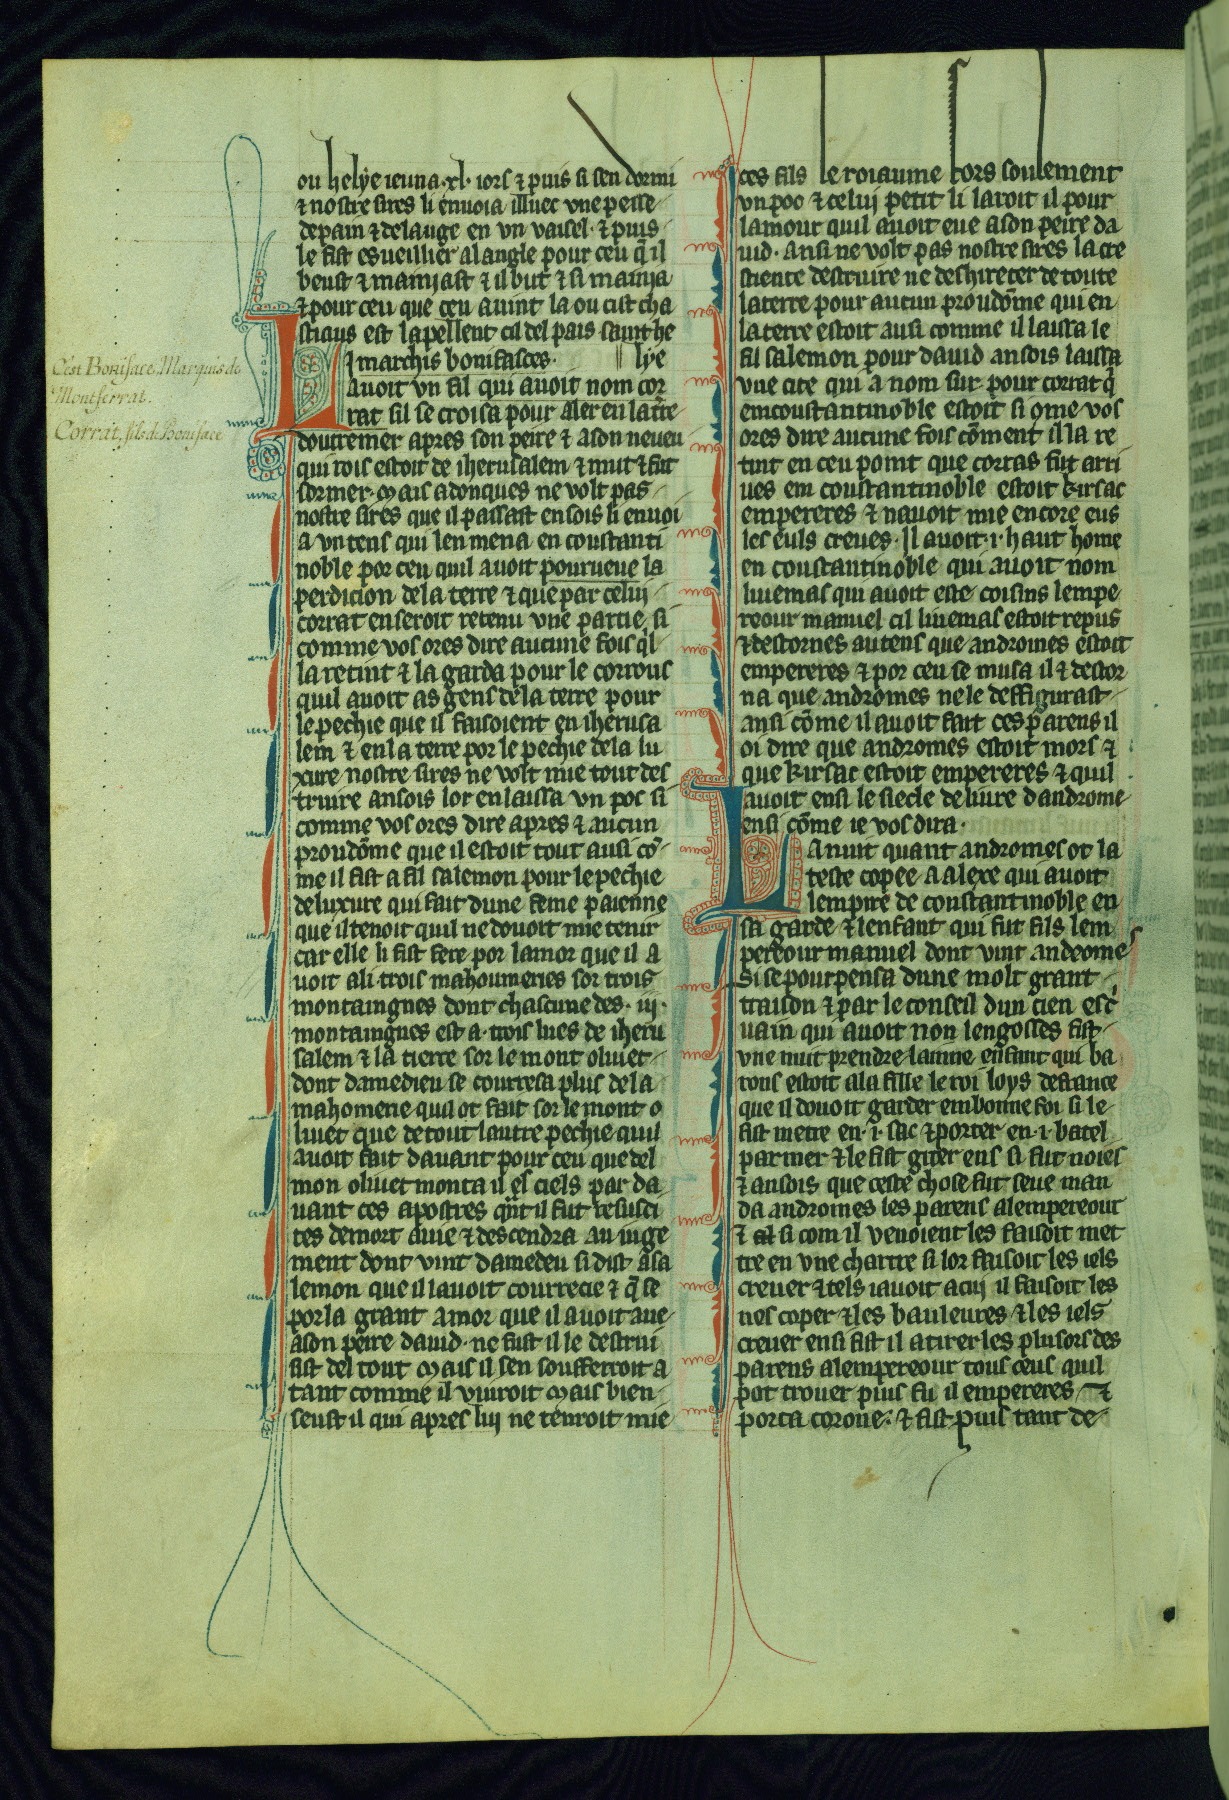 ou helye ieuna .xl. iors ⁊ puis si sen dormi
⁊ nostre sires li enuoia illuec vne pesse
de pain ⁊ de lauge en vn vaisel. ⁊ puis
le fist esueillier al angle pour ceu q̃ il
beust ⁊ mamjast ⁊ il but ⁊ si mainja
⁊ pour ceu que ceu auint la ou cist cha
stiaus est lapellent cil del pais saint he
lye
C'est Boniface, Marquis de
Montferrat.
Corrat, fils de Boniface
Li marchis bonifasces.
auoit vn fil qui auoit nom cor
rat sil se croisa pour aler en la t̃re
doutremer apres son peire ⁊ a son neueu
qui rois estoit de iherusalem ⁊ mut ⁊ fut
sor mer. Mais adonques ne volt pas
nostre sires que il passast ensois li enuoi
a vn tens qui len mena en coustanti
noble por ceu quil auoit pourueue la
perdicion de la terre ⁊ que par celuj
corrat en seroit retenu vne partie, si
comme vos ores dire aucune fois q̃l
la retint ⁊ la garda pour le corrous
quil auoit as gens de la terre pour
le pechie que il faisoient en iherusa
lem ⁊ en la terre por le pechie de la lu
xure nostre sires ne volt mie tout des
truire ansois lor en laissa vn poc si
comme vos ores dire apres ⁊ aucun
proudõme que il estoit tout ausi cõ
me il fist a fil salemon pour le pechie
de luxure qui fait dune feme paienne
que il tenoit quil ne douoit mie tenir
car elle li fist fere por lamor que il a
uoit a li trois mahoumeries sor trois
montaingnes dont chascune des .iij.
montaingnes est a .trois lues de iheru
salem ⁊ la tierce sor le mont oliuet
dont damedieu se courresa plus de la
mahomerie quil ot fait sor le mont o
liuet que de tout lautre pechie quil
auoit fait dauant pour ceu que del
mon oliuet monta il es ciels par da
uant ces apostres q̃nt il fut resusci
tes de mort a vie ⁊ descendra au iuge
ment dont vint damedeu si dist a sa
lemon que il lauoit courrecie ⁊ q̃ se
por la grant amor que il auoit aue
a son peire dauid. ne fust il le destrui
sist del tout Mais il sen soufferroit a
tant comme il viuroit Mais bien
seust il qui apres luj ne tenroit mie
ces fils le roiaume fors soulement
vn poo ⁊ celuj petit li lairoit il pour
lamour quil auoit eue a son peire da
uid. Ansi ne volt pas nostre sires la cre
stiente destruire ne deshireter de toute
la terre pour aucun proudõme qui en
la terre estoit ausi comme il laissa le
fil salemon pour dauid ansois laissa
vne cite qui a nom sur. pour corrat q̃
em coustantinoble estoit si ome vos
ores dire aucune fois cõment il la re
tint en ceu point que corras fut arri
ues em coustantinoble estoit kirsac
empereres ⁊ nauoit mie encore eus
les euls creues. Il auoit .i. haut home
en coustantinoble qui auoit nom
liuernas qui auoit este coisins lempe
reour manuel cil liuernas estoit repus
⁊ destornes au tens que andromes estoit
empereres ⁊ por ceu se musa il ⁊ destor
na que andromes ne le deffigurast
ansi cõme il auoit fait ces parens il
oi dire que andromes estoit mors ⁊
que kirsac estoit empereres ⁊ quil
auoit ensi le siecle deliure dandrome
ensi cõme ie vos dira.
La nuit quant andromes ot la
teste copee a alexe qui auoit
lempire de constantinoble en
sa garde ⁊ lenfant qui fut fils lem
pereour manuel dont vint andromes
si se pourpensa dune molt grant
traison ⁊ par le conseil dun cien esc̾
uain qui auoit non lengosses fist
vne nuit prendre lanne enfant qui ba
rons estoit a la fille le roi loys de france
que il douoit garder em bonne foi si le
fist metre en .i. sac ⁊ porter en .i. batel
par mer ⁊ le fist giter ens si fut noies
⁊ ansois que ceste chose fut seue man
da andromes les parens alempereour
⁊ si com il venoient les faisoit met
tre en vne chartre si lor faisoit les iels
creuer ⁊ tels iauoit a cuj il faisoit les
nes coper ⁊ les bauleures ⁊ les iels
creuer ensi fist il atirer les plusors des
parens alempereour tous ceus quil
pot trouer puis fu il empereres ⁊
porta corone. ⁊ fist puis tant de